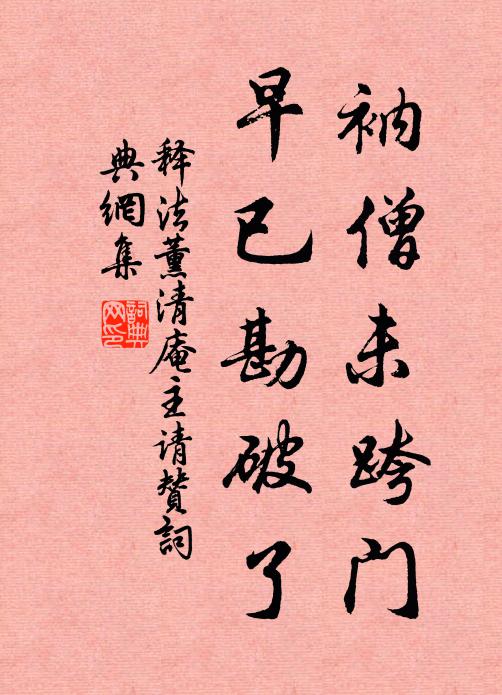 衲僧未跨门
早已勘破了
释法薰清庵主请赞词
典網集
詞典网印